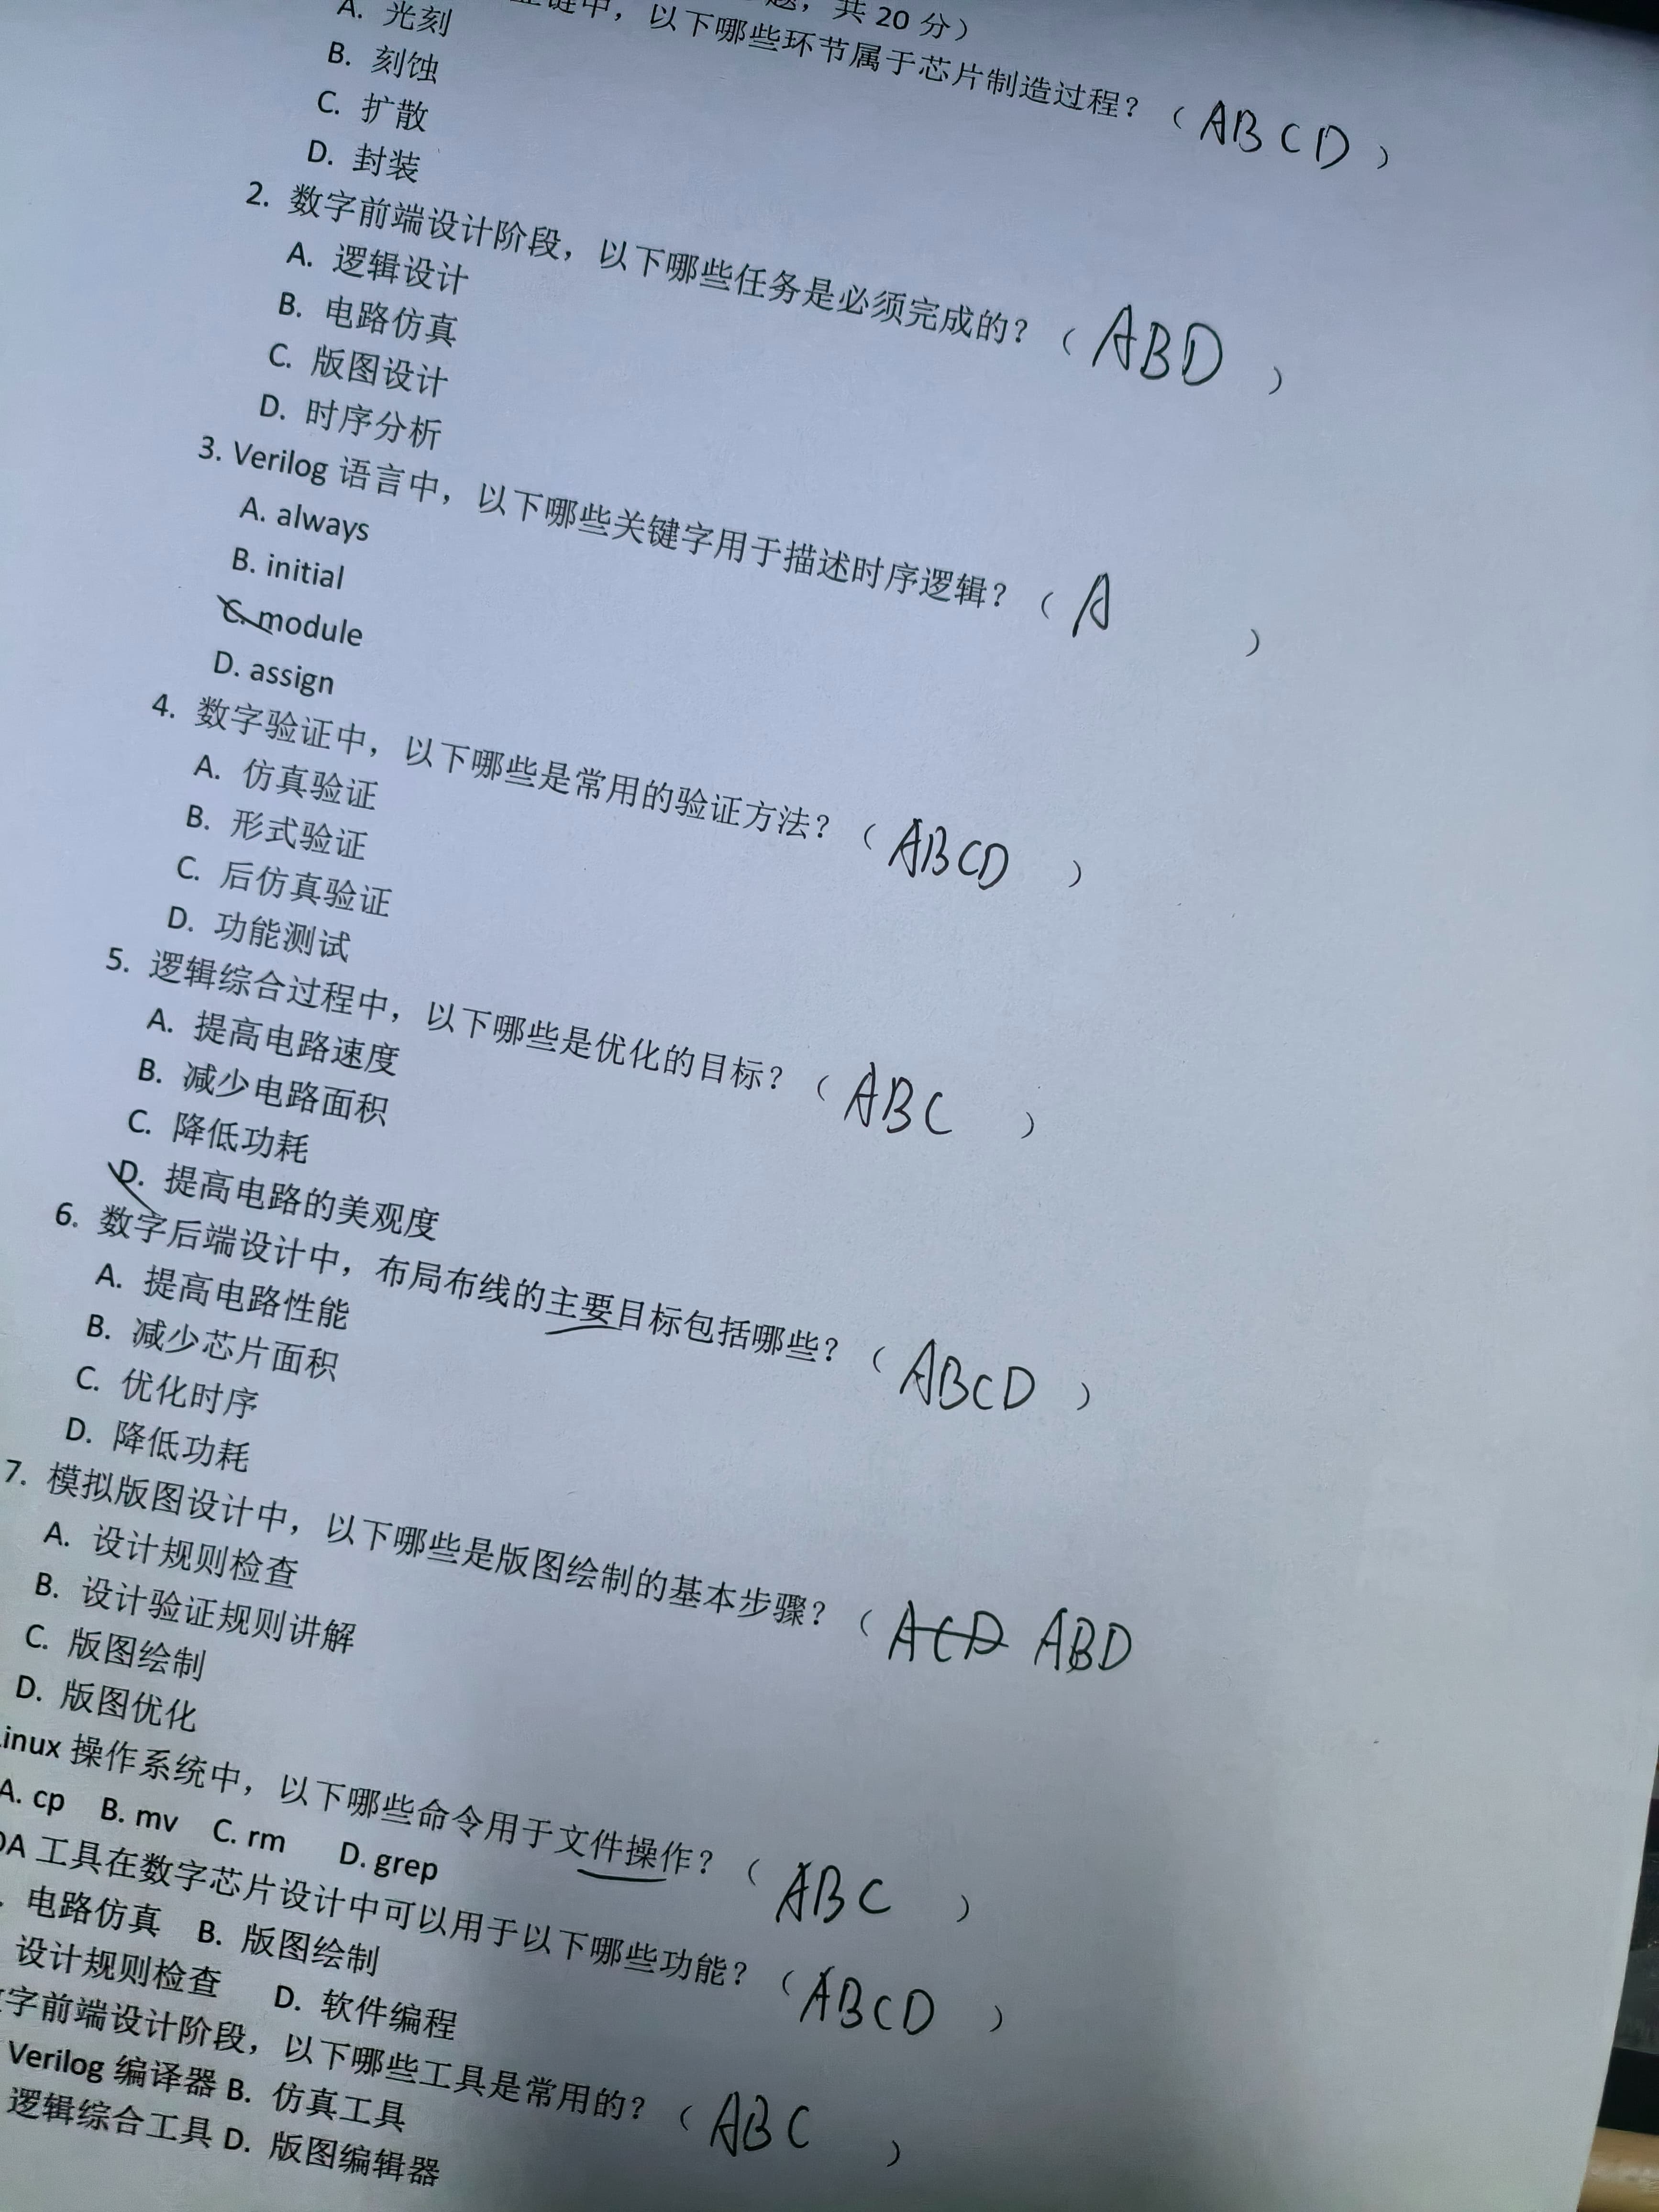 题，共 20 分）
业链中，以下哪些环节属于芯片制造过程？（ ABCD ）
A. 光刻
B. 刻蚀
C. 扩散
D. 封装
2. 数字前端设计阶段，以下哪些任务是必须完成的？（ ABD ）
A. 逻辑设计
B. 电路仿真
C. 版图设计
D. 时序分析
3. Verilog 语言中，以下哪些关键字用于描述时序逻辑？（ A ）
A. always
B. initial
C. module
D. assign
4. 数字验证中，以下哪些是常用的验证方法？（ ABCD ）
A. 仿真验证
B. 形式验证
C. 后仿真验证
D. 功能测试
5. 逻辑综合过程中，以下哪些是优化的目标？（ ABC ）
A. 提高电路速度
B. 减少电路面积
C. 降低功耗
D. 提高电路的美观度
6. 数字后端设计中，布局布线的主要目标包括哪些？（ ABCD ）
A. 提高电路性能
B. 减少芯片面积
C. 优化时序
D. 降低功耗
7. 模拟版图设计中，以下哪些是版图绘制的基本步骤？（ ACD ABD
A. 设计规则检查
B. 设计验证规则讲解
C. 版图绘制
D. 版图优化
inux 操作系统中，以下哪些命令用于文件操作？（ ABC ）
A. cp B. mv C. rm D. grep
DA 工具在数字芯片设计中可以用于以下哪些功能？（ ABCD ）
. 电路仿真 B. 版图绘制
设计规则检查 D. 软件编程
字前端设计阶段，以下哪些工具是常用的？（ ABC ）
Verilog 编译器 B. 仿真工具
逻辑综合工具 D. 版图编辑器